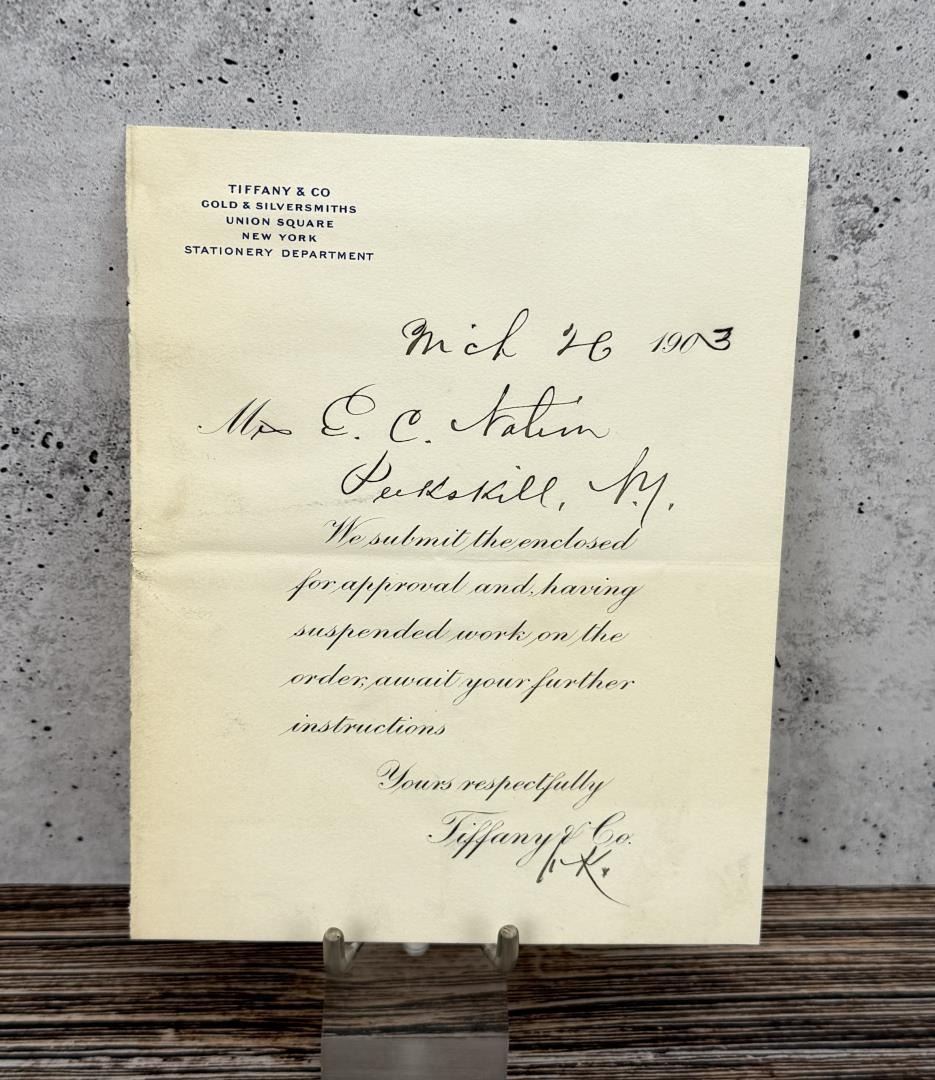 TIFFANY & CO
GOLD & SILVERSMITHS
UNION SQUARE
NEW YORK
STATIONERY DEPARTMENT
Mch 26 1903
E. C. Nation
Peekskill, N.Y.
We submit the enclosed
for approval and, having
suspended work on the
order, await your further
instructions
Yours respectfully
Tiffany & Co.
K.